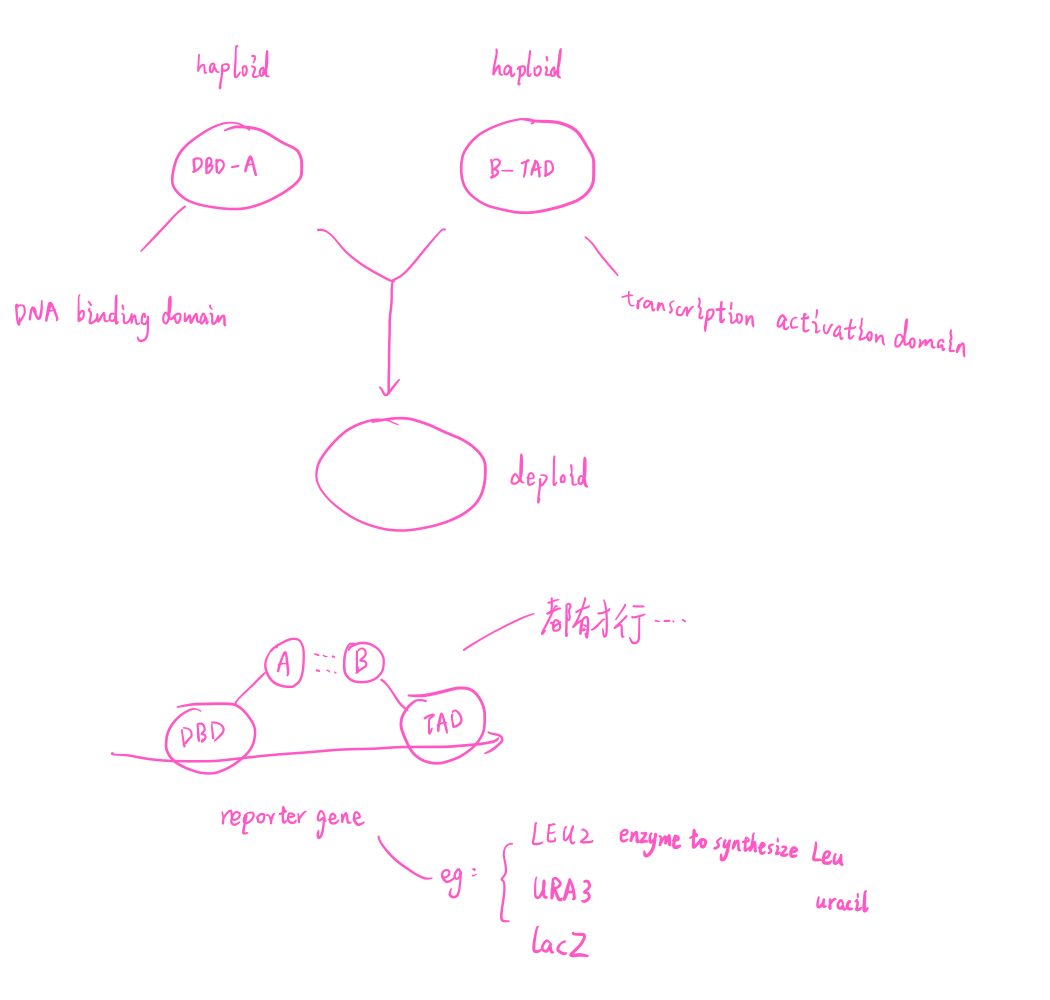 haploid
haploid
DBD-A
B-TAD
DNA binding domain
transcription activation domain
deploid
都有才行....
A
B
DBD
TAD
reporter gene
eg:
LEU2 enzyme to synthesize Leu
URA3 uracil
lacZ